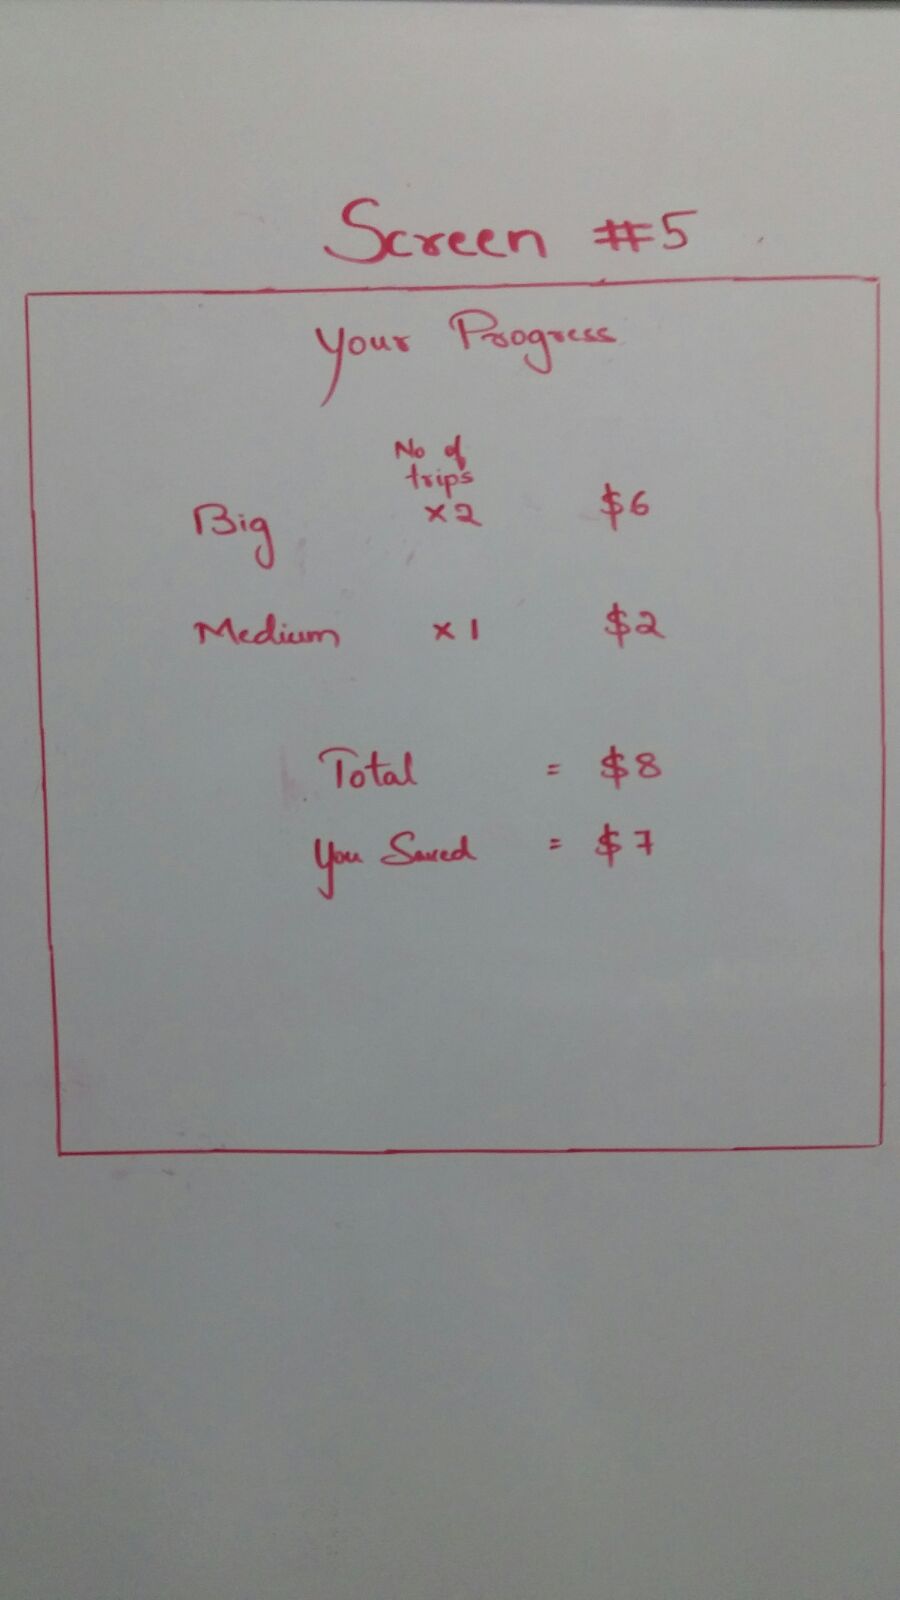 Screen #5
Your Progress
No of
trips
Big x2 $6
Medium x1 $2
Total = $8
You Saved = $7